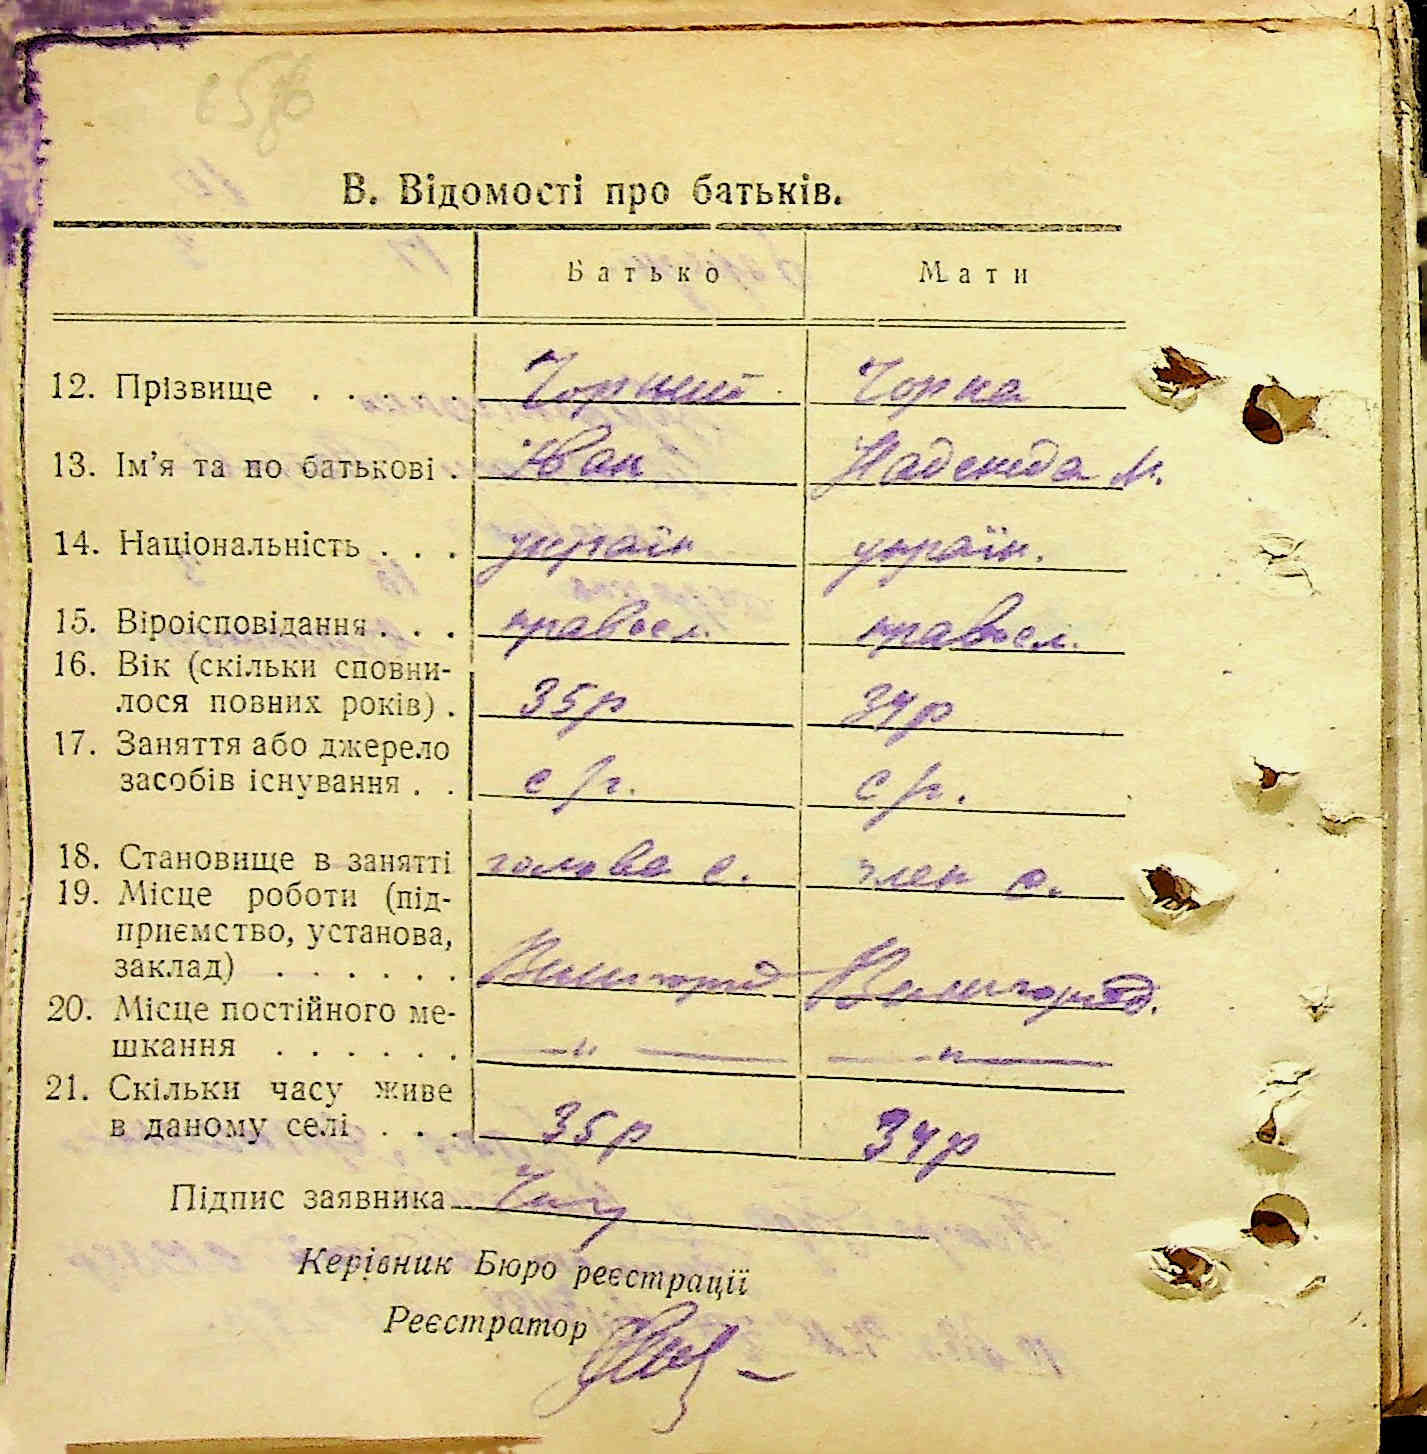 В. Відомості про батьків.
Батько Мати
12. Прізвище . . . . . Чорний Чорна
13. Ім’я та по батькові . Іван Надежда М.
14. Національність . . . україн україн.
15. Віроісповідання . . . правосл. правосл.
16. Вік (скільки сповни-
лося повних років) . 35р 34р
17. Заняття або джерело
засобів існування . . с/г. с/г.
18. Становище в занятті голова с. член с.
19. Місце роботи (під-
приємство, установа,
заклад) . . . . . . Вишгород Вишгород.
20. Місце постійного ме-
шкання . . . . . . — „ — — „ —
21. Скільки часу живе
в даному селі . . . 35р 34р
Підпис заявника
Керівник Бюро реєстрації
Реєстратор